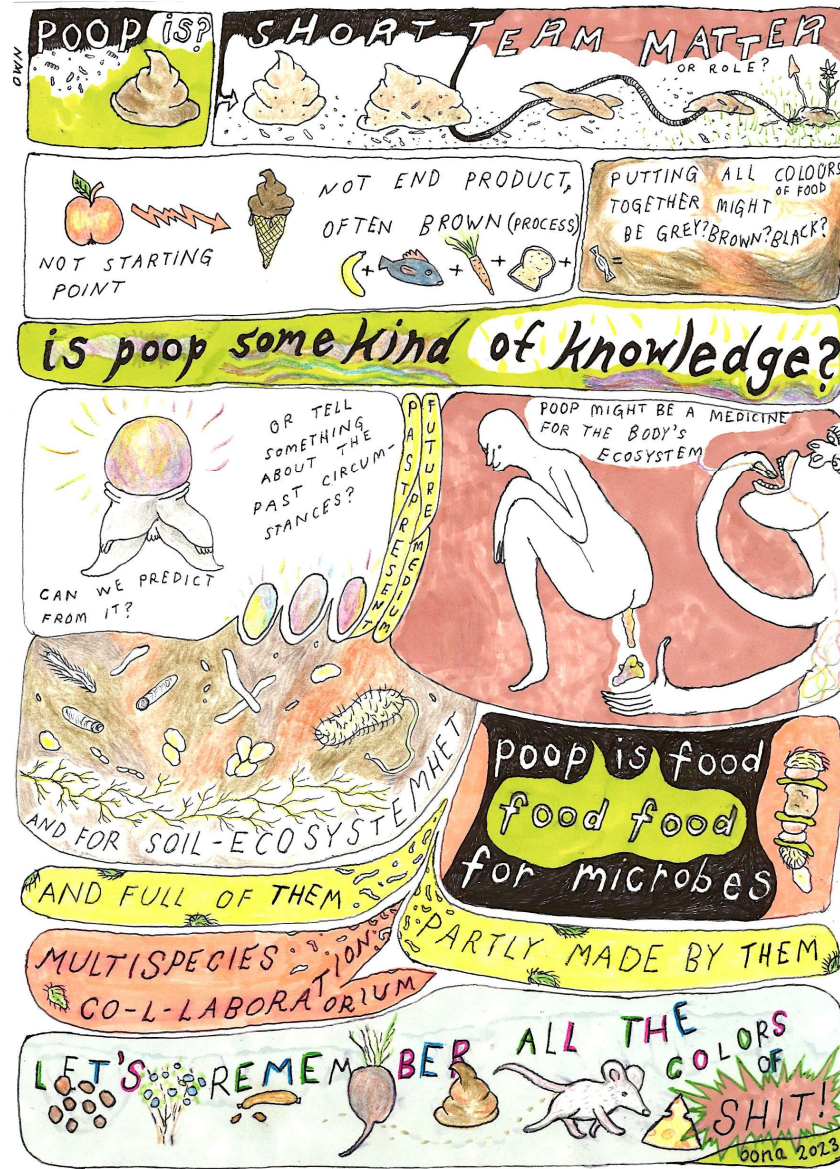 POOP is?
OWN
SHORT-TERM MATTER
OR ROLE?
NOT STARTING
POINT
NOT END PRODUCT,
OFTEN BROWN (PROCESS)
+ + + +
PUTTING ALL COLOURS
OF FOOD
TOGETHER MIGHT
BE GREY? BROWN? BLACK?
=
is poop some kind of knowledge?
OR TELL
SOMETHING
ABOUT THE
PAST CIRCUM-
STANCES?
CAN WE PREDICT
FROM IT?
PAST PRESENT
FUTURE MEDIUM
POOP MIGHT BE A MEDICINE
FOR THE BODY'S
ECOSYSTEM
AND FOR SOIL-ECOSYSTEMHET
poop is food
food food
for microbes
AND FULL OF THEM
PARTLY MADE BY THEM
MULTISPECIES
CO-L-LABORATION
ORIUM
LET'S REMEMBER ALL THE
COLORS
OF
SHIT!
bona 2023